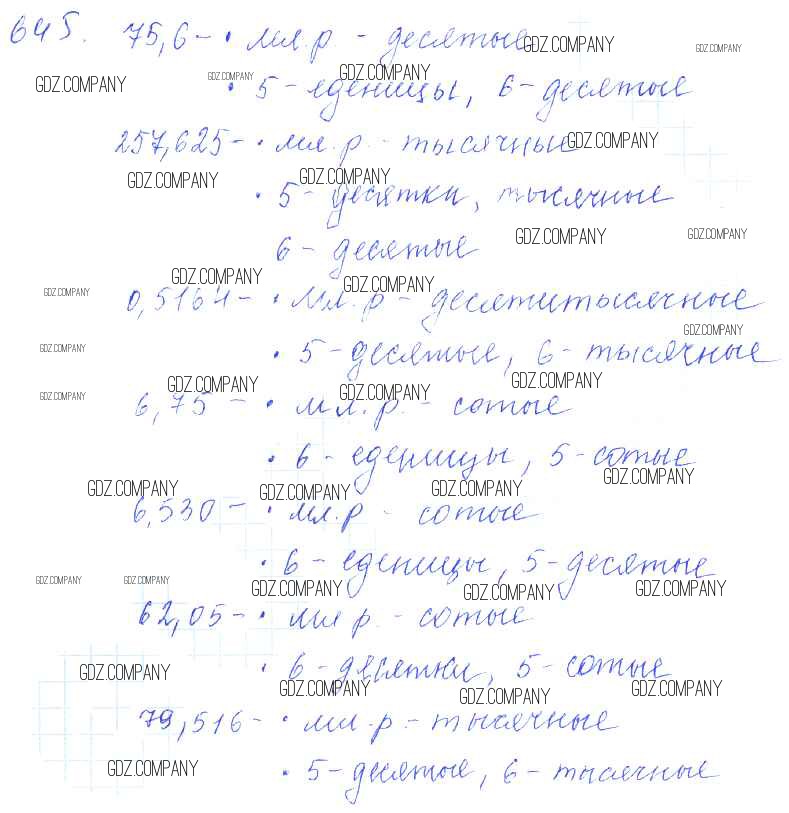 645. 75,6 - • мл.р. - десятые GDZ.COMPANY GDZ.COMPANY
GDZ.COMPANY GDZ.COMPANY GDZ.COMPANY
• 5 - еденицы, 6 - десятые
257,625 - • мл.р. - тысячные GDZ.COMPANY
GDZ.COMPANY GDZ.COMPANY
• 5 - десятки, тысячные
6 - десятые GDZ.COMPANY GDZ.COMPANY
GDZ.COMPANY GDZ.COMPANY GDZ.COMPANY
0,5164 - • мл.р - десятитысячные
GDZ.COMPANY
GDZ.COMPANY • 5 - десятые, 6 - тысячные
GDZ.COMPANY GDZ.COMPANY GDZ.COMPANY GDZ.COMPANY
6,75 - • мл.р. - сотые
• 6 - еденицы, 5 - сотые
GDZ.COMPANY GDZ.COMPANY GDZ.COMPANY GDZ.COMPANY
6,530 - • мл.р - сотые
• 6 - еденицы, 5 - десятые
GDZ.COMPANY GDZ.COMPANY GDZ.COMPANY GDZ.COMPANY GDZ.COMPANY
62,05 - • мл р. - сотые
• 6 - десятки, 5 - сотые
GDZ.COMPANY GDZ.COMPANY GDZ.COMPANY GDZ.COMPANY
79,516 - • мл.р. - тысячные
GDZ.COMPANY • 5 - десятые, 6 - тысячные